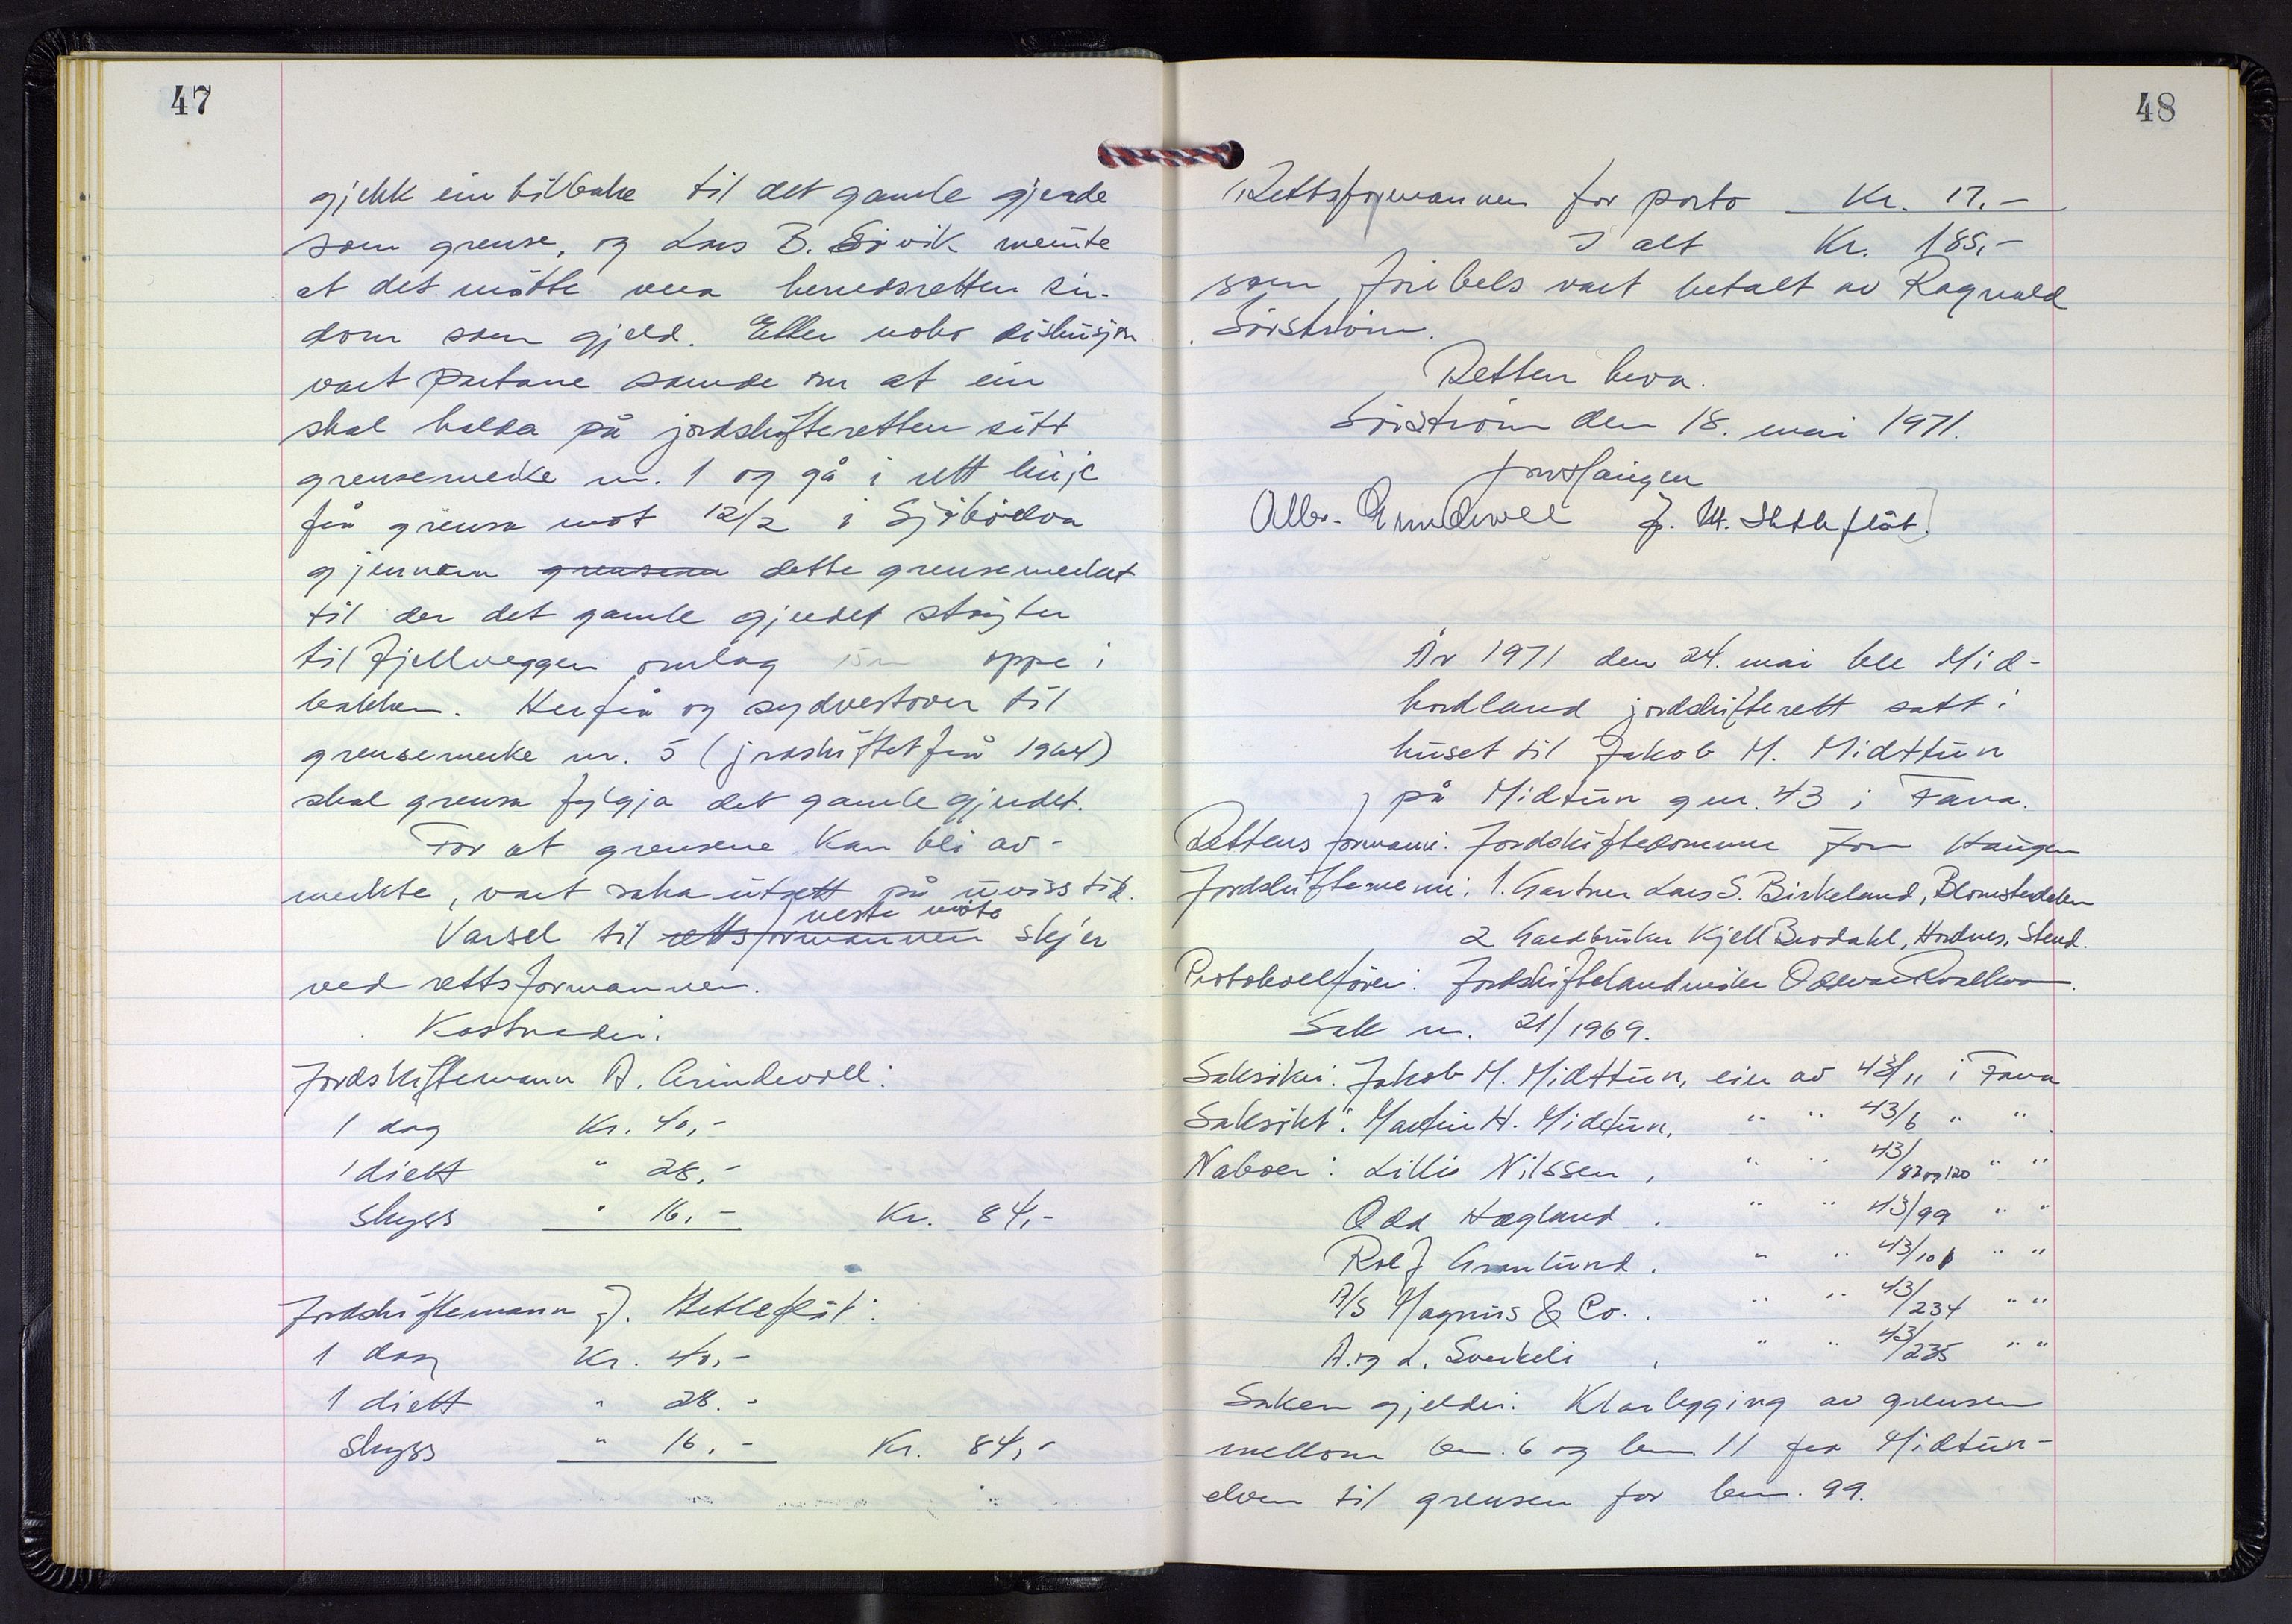 47
gjekk ein tilbake til det gamle gjerde
som grense, og Lars B. Sörvik meinte
at det måtte vera herredsretten sin
dom som gjeld. Etter noko diskusjon
vart partane samde om at ein
skal halda på jordskifteretten sitt
grensemerke nr. 1 og gå i rett linje
frå grensa mot 12/2 i
gjennom grensene dette grensemerket
til der det gamle gjerdet støyter
til fjellveggen omlag 15 m oppe i
bakken. Herfrå og sydvestover til
grensemerke nr. 5 (jordskiftet frå 1964)
skal grensa fylgja det gamle gjerdet.
For at grensene kan bli av-
merkte, vart saka utsett på uviss tid.
neste møte
Varsel til rettsformannen skjer
ved rettsformannen.
Kostnader:
Jordskiftemann A. Grindevoll:
1 dag Kr. 40,-
1 diett " 28,-
skyss " 16,- Kr. 84,-
Jordskiftemann J. Hetleflåt:
1 dag Kr. 40,-
1 diett " 28.-
skyss " 16,- Kr. 84,-
48
Rettsformannen for porto Kr. 17.-
I alt Kr. 185,-
som fribels vart betalt av Ragnvald
Sörström.
Retten heva.
Sörström den 18. mai 1971.
Jon Haugen
Alb. Grindevoll J. M. Hetleflåt.
År 1971 den 24. mai ble Mid-
hordland jordskifterett satt i
huset til Jakob M. Midttun
på Midtun gnr. 43 i Fana.
Rettens formann: Jordskiftedommer Jon Haugen
Jordskiftemenn: 1. Gartner Lars S. Birkeland, Blomsterdalen
2 Gardbruker Kjell Brodahl, Hordnes, Stend.
Protokollfører: Jordskiftelandmåler Oddvar
Sak nr. 21/1969.
Saksøker: Jakob M. Midttun, eier av 43/11 i Fana
Saksøkt: Martin H. Midttun, " " 43/6 " "
Naboer: Lillie Nilssen, " " 43/82 og 120 " "
Odd Hagland. " " 43/99 " "
Rolf Granlund. " " 43/101 " "
A/S Magnus & Co.. " " 43/234 " "
A. og L. Sverkeli, " " 43/235 " "
Saken gjelder: Klarlegging av grensen
mellom bnr. 6 og bnr 11 fra Midtun-
elven til grensen for bnr. 99.